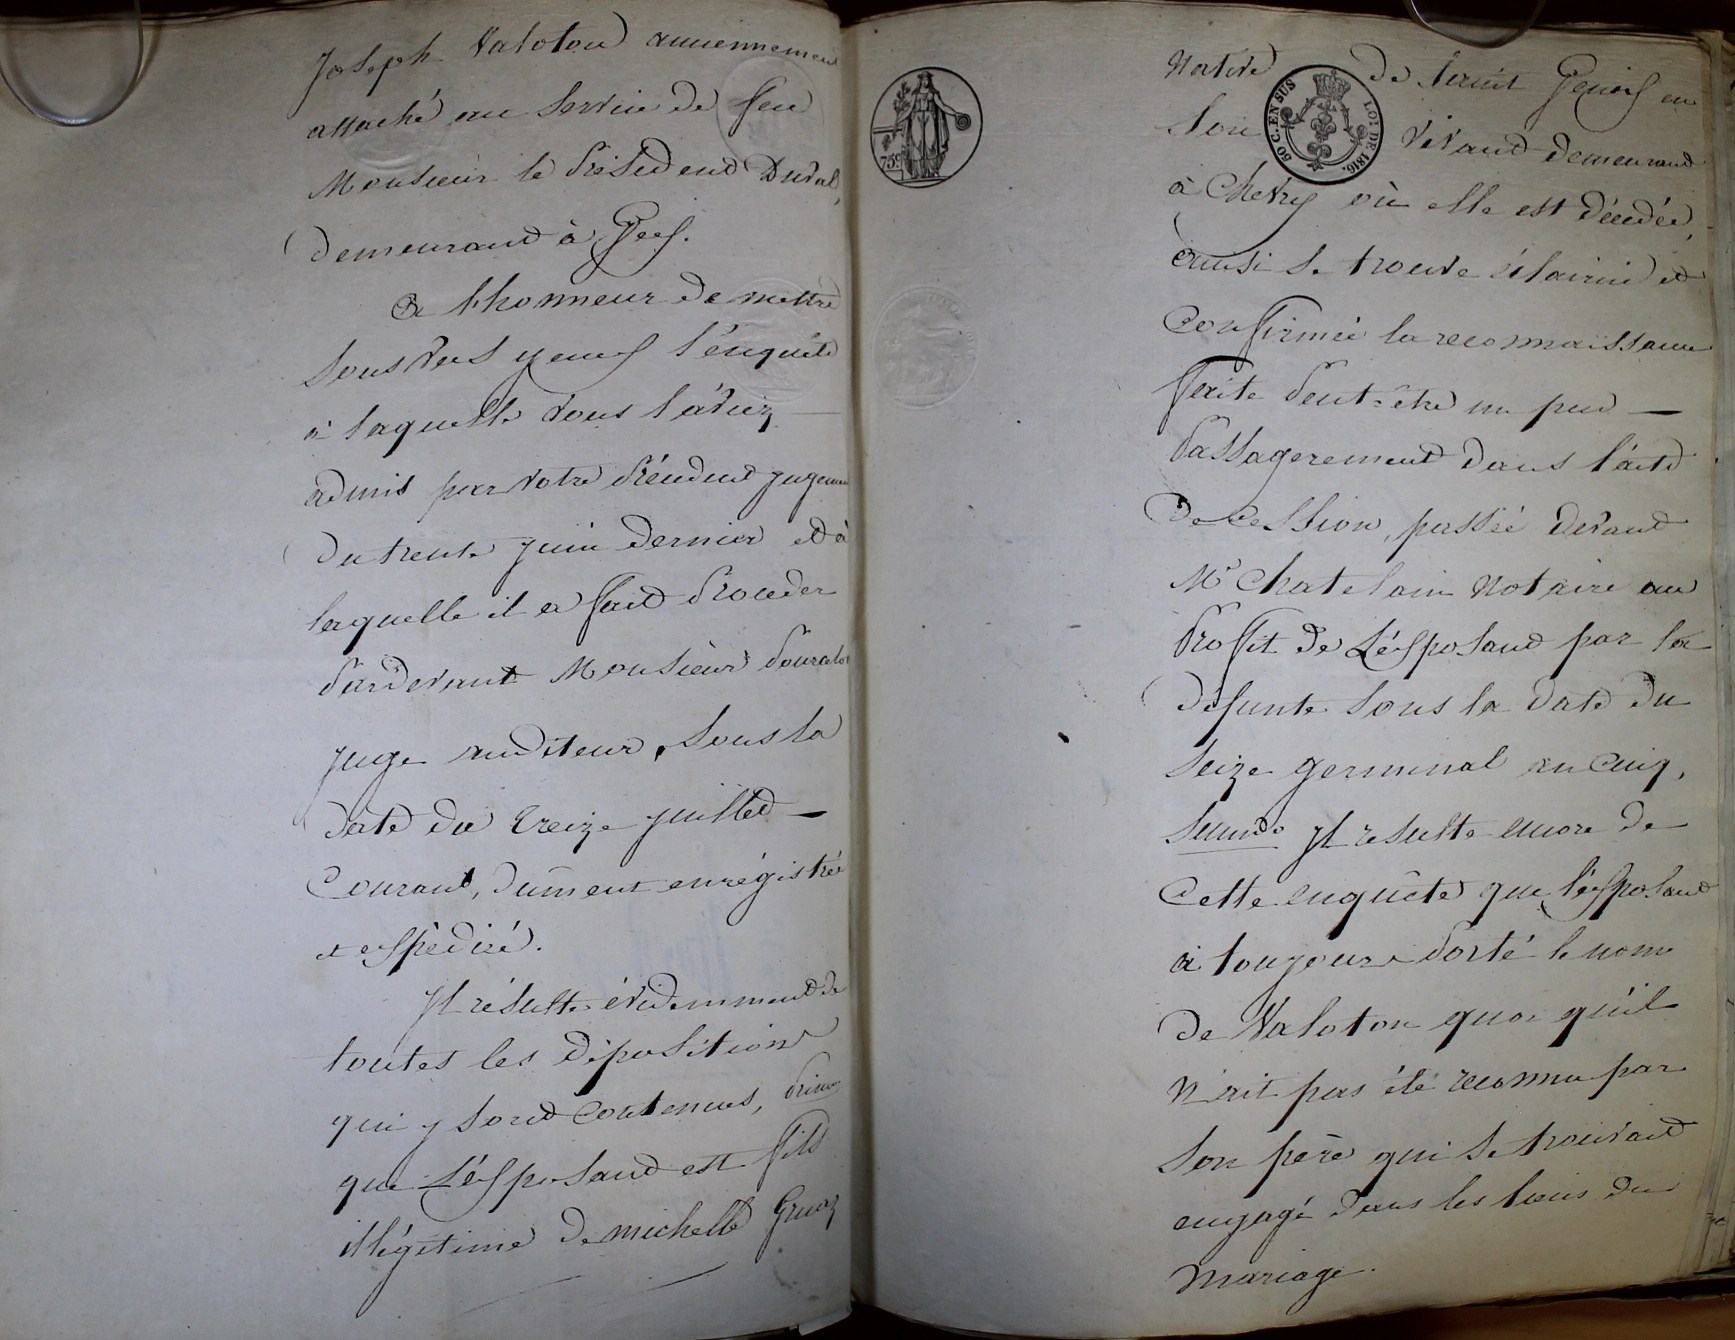 Joseph Valoton anciennement
attaché au service de feu
Monsieur le Président Duval,
demeurant à Gex.
a l'honneur de mettre
sous vos yeux l'enquête
à laquelle vous l'aviez
admis par votre précédent jugement
du trente juin dernier et à
laquelle il a fait procéder
pardevant Monsieur
juge auditeur, sous la
date du treize juillet
courant, dûment enrégistrée
et expédiée.
Il résulte évidemment de
toutes les dépositions
qui y sont contenues, primo
que L'exposant est fils
illégitime de michelle Gruaz
759
50 C. EN SUS
LOI DE 1816.
Native de saint Genis en
son vivant demeurant
à Chevry où elle est décédée,
ainsi se trouve éclaircie et
Confirmée la reconnaissance
faite peut-être un peu
passagerement dans l'acte
de cession, passée devant
Mr Chatelain Notaire au
profit de L'exposant par la
défunte sous la date du
seize germinal an cinq,
secundo Il resulte encore de
Cette enquête que l'exposant
a toujours porté le nom
de Valoton quoi qu'il
n'ait pas été reconnu par
son père qui se trouvait
engagé dans les liens du
mariage.